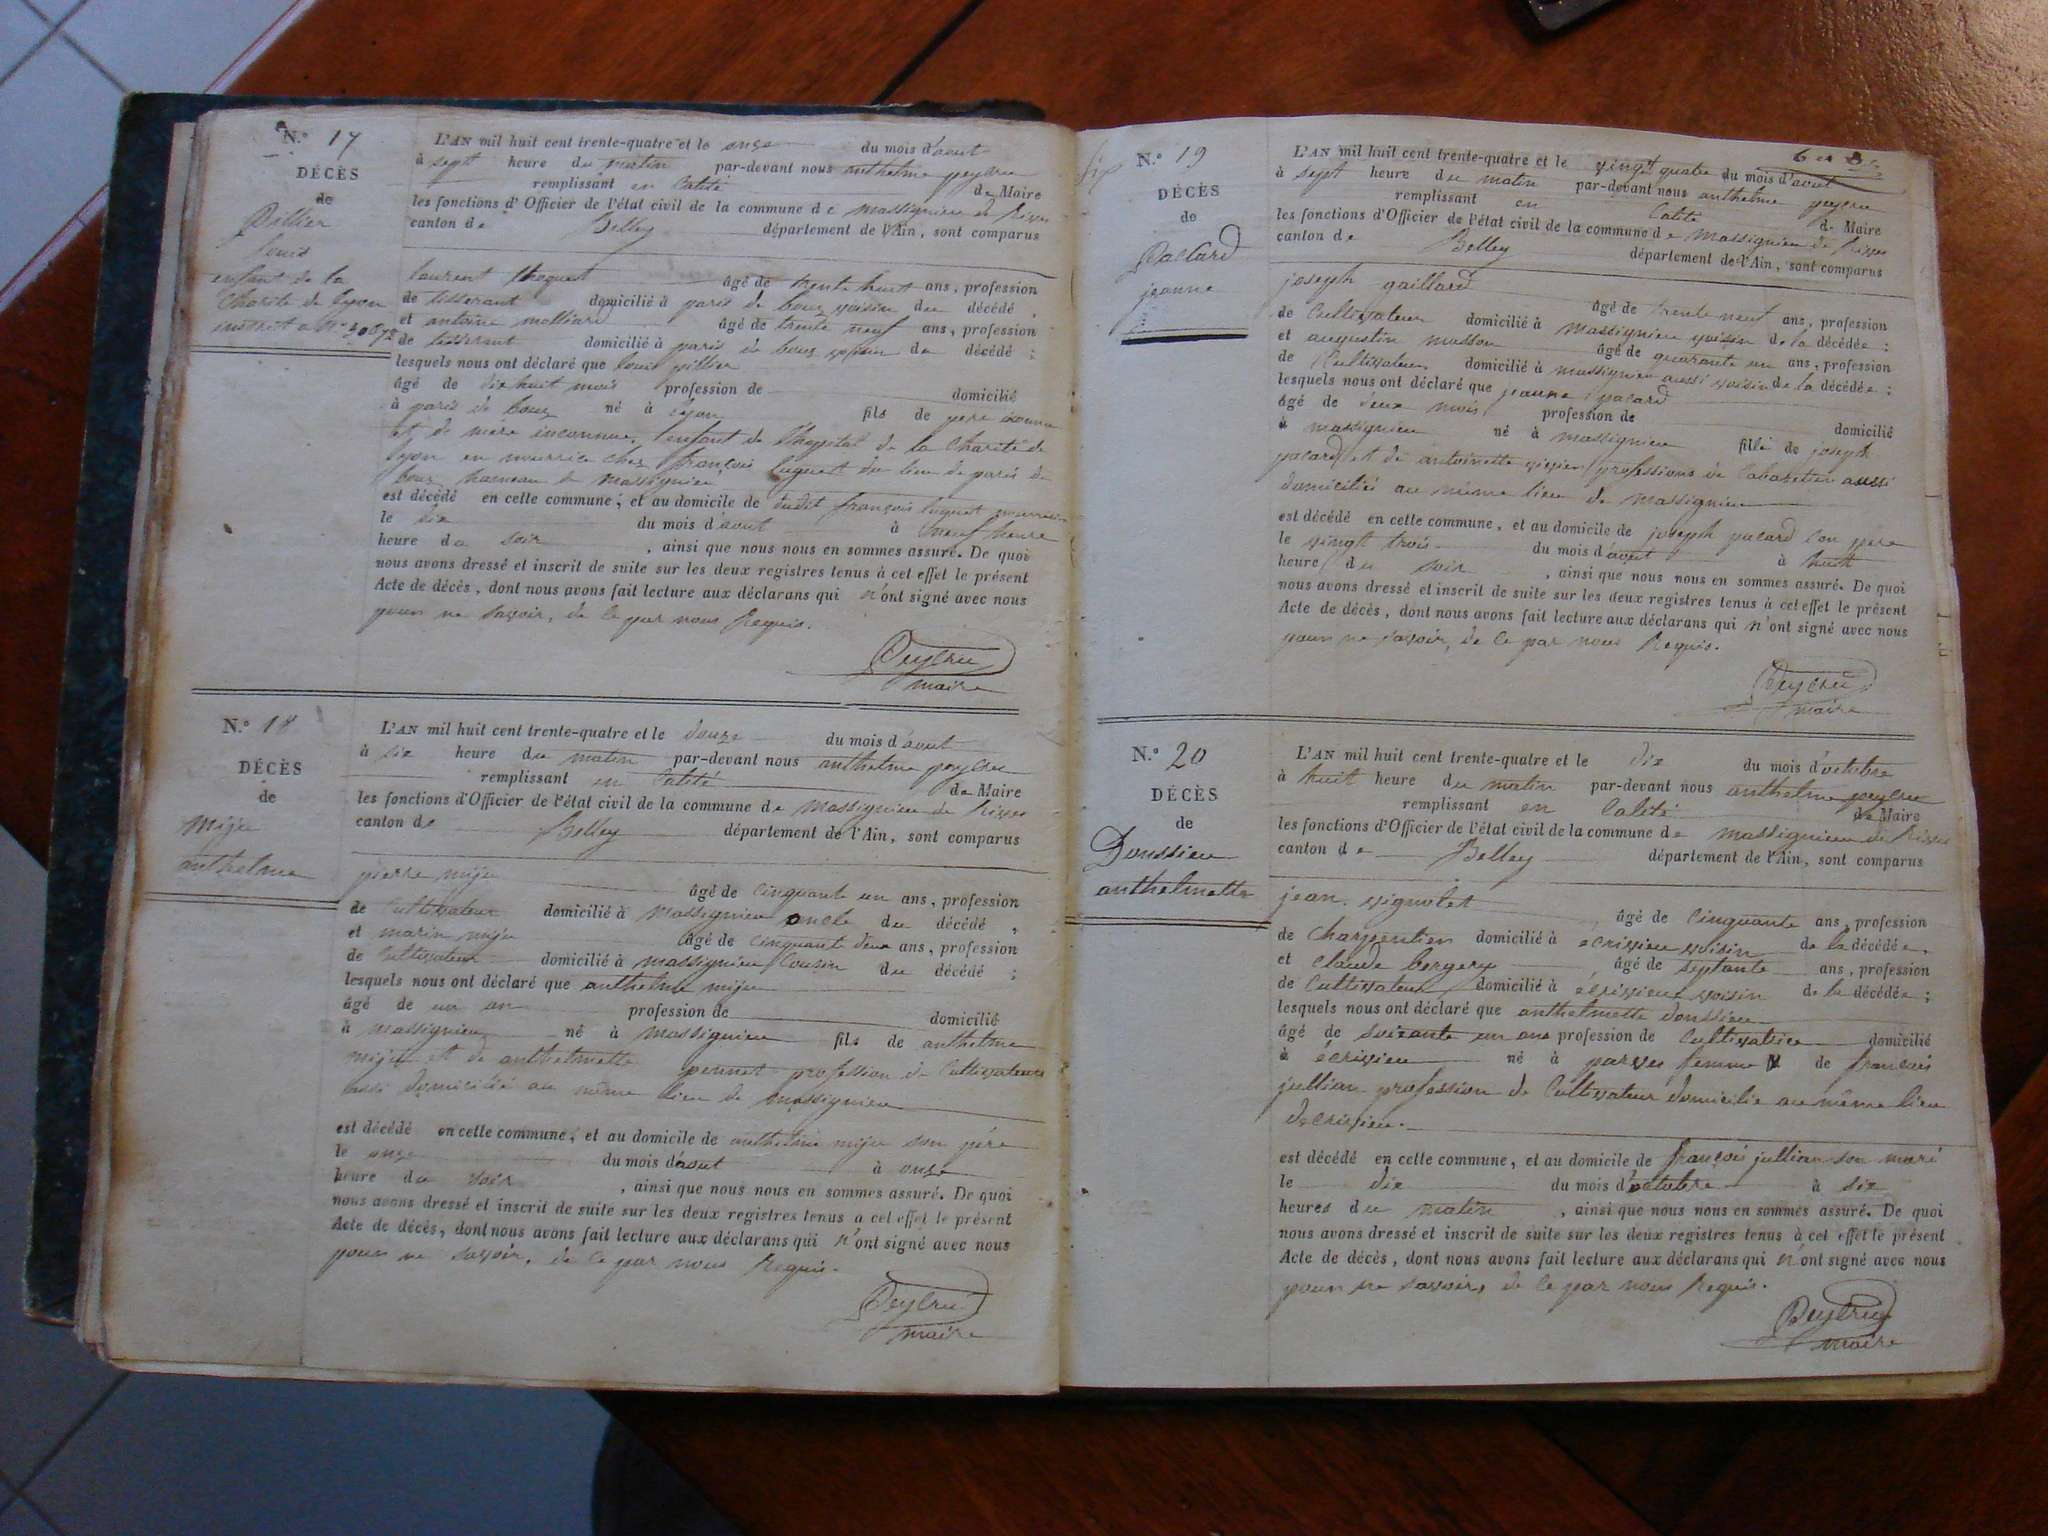 N.° 17
DÉCÈS
de
Pillier
Louis
enfant de la
Charité de Lyon
L'AN mil huit cent trente-quatre et le onze du mois d'aout
à sept heure du matin par-devant nous anthelme peycru
remplissant en calité de Maire
les fonctions d'Officier de l'état civil de la commune de massignieu de Rives
canton de Belley département de l'Ain, sont comparus
laurent âgé de trente huit ans, profession
de tisserant domicilié à paris de bouz voisin du décédé,
et antoine molliard âgé de trente neuf ans, profession
de tisserant domicilié à paris de bouz voisin du décédé;
lesquels nous ont déclaré que louis pillier
âgé de dix huit mois profession de domicilié
à paris de bouz né à lyon fils de pere inconnu
et de mere inconnue, l'enfant de l'hopital de la Charité de
lyon en nourrice chez françois luguet du lieu de paris de
bouz hameau de massignieu
est décédé en cette commune, et au domicile de dudit françois luguet
le dix du mois d'aout à neuf heure
heure du soir, ainsi que nous nous en sommes assuré. De quoi
nous avons dressé et inscrit de suite sur les deux registres tenus à cet effet le présent
Acte de décès, dont nous avons fait lecture aux déclarans qui n'ont signé avec nous
pour ne savoir, de ce par nous Requis.
Peycru
maire
N.° 18
DÉCÈS
de
Miju
anthelme
L'AN mil huit cent trente-quatre et le douze du mois d'aout
à six heure du matin par-devant nous anthelme peycru
remplissant en calité de Maire
les fonctions d'Officier de l'état civil de la commune de massignieu de Rives
canton de Belley département de l'Ain, sont comparus
pierre miju âgé de cinquante un ans, profession
de Cultivateur domicilié à massignieu oncle du décédé,
et marin miju âgé de cinquante deux ans, profession
de Cultivateur domicilié à massignieu Cousin du décédé;
lesquels nous ont déclaré que anthelme miju
âgé de un an profession de domicilié
à massignieu né à massignieu fils de anthelme
miju et de anthelmette pennet profession de Cultivateurs
aussi domicilié au même lieu de massignieu
est décédé en cette commune, et au domicile de anthelme miju son père
le onze du mois d'aout à onze
heure du soir, ainsi que nous nous en sommes assuré. De quoi
nous avons dressé et inscrit de suite sur les deux registres tenus à cet effet le présent
Acte de décès, dont nous avons fait lecture aux déclarans qui n'ont signé avec nous
pour ne savoir, de ce par nous Requis.
Peycru
maire
N.° 19
DÉCÈS
de
Paccard
jeanne
L'AN mil huit cent trente-quatre et le vingt quatre du mois d'aout
à sept heure du matin par-devant nous anthelme peycru
remplissant en calité de Maire
les fonctions d'Officier de l'état civil de la commune de massignieu de Rives
canton de Belley département de l'Ain, sont comparus
joseph gaillard âgé de trente neuf ans, profession
de Cultivateur domicilié à massignieu voisin de la décédée;
et augustin masson âgé de quarante un ans, profession
de Cultivateur domicilié à massignieu aussi voisin de la décédée;
lesquels nous ont déclaré que jeanne pacard
âgé de deux mois profession de domicilié
à massignieu né à massignieu fille de joseph
pacard et de antoinette professions de Cabaretier aussi
domiciliés au même lieu de massignieu
est décédé en cette commune, et au domicile de joseph pacard son pere
le vingt trois du mois d'aout à huit
heure du soir, ainsi que nous nous en sommes assuré. De quoi
nous avons dressé et inscrit de suite sur les deux registres tenus à cet effet le présent
Acte de décès, dont nous avons fait lecture aux déclarans qui n'ont signé avec nous
pour ne savoir, de ce par nous Requis.
Peycru
maire
N.° 20
DÉCÈS
de
Doussieu
anthelmette
L'AN mil huit cent trente-quatre et le dix du mois d'octobre
à huit heure du matin par-devant nous anthelme peycru
remplissant en calité de Maire
les fonctions d'Officier de l'état civil de la commune de massignieu de Rives
canton de Belley département de l'Ain, sont comparus
jean vignolet âgé de cinquante ans, profession
de Charpentier domicilié à écrivieu voisin de la décédée,
et Claude bergery âgé de septante ans, profession
de Cultivateur domicilié à écrivieu voisin de la décédée;
lesquels nous ont déclaré que anthelmette doussieu
âgé de soixante un ans profession de Cultivatrice domicilié
à écrivieu né à parves femme de francois
jullian profession de Cultivateur domicilié au même lieu
décrivieu.
est décédé en cette commune, et au domicile de françois jullian son mari
le dix du mois d'octobre à six
heures du matin, ainsi que nous nous en sommes assuré. De quoi
nous avons dressé et inscrit de suite sur les deux registres tenus à cet effet le présent
Acte de décès, dont nous avons fait lecture aux déclarans qui n'ont signé avec nous
pour ne savoir, de ce par nous Requis.
Peycru
maire